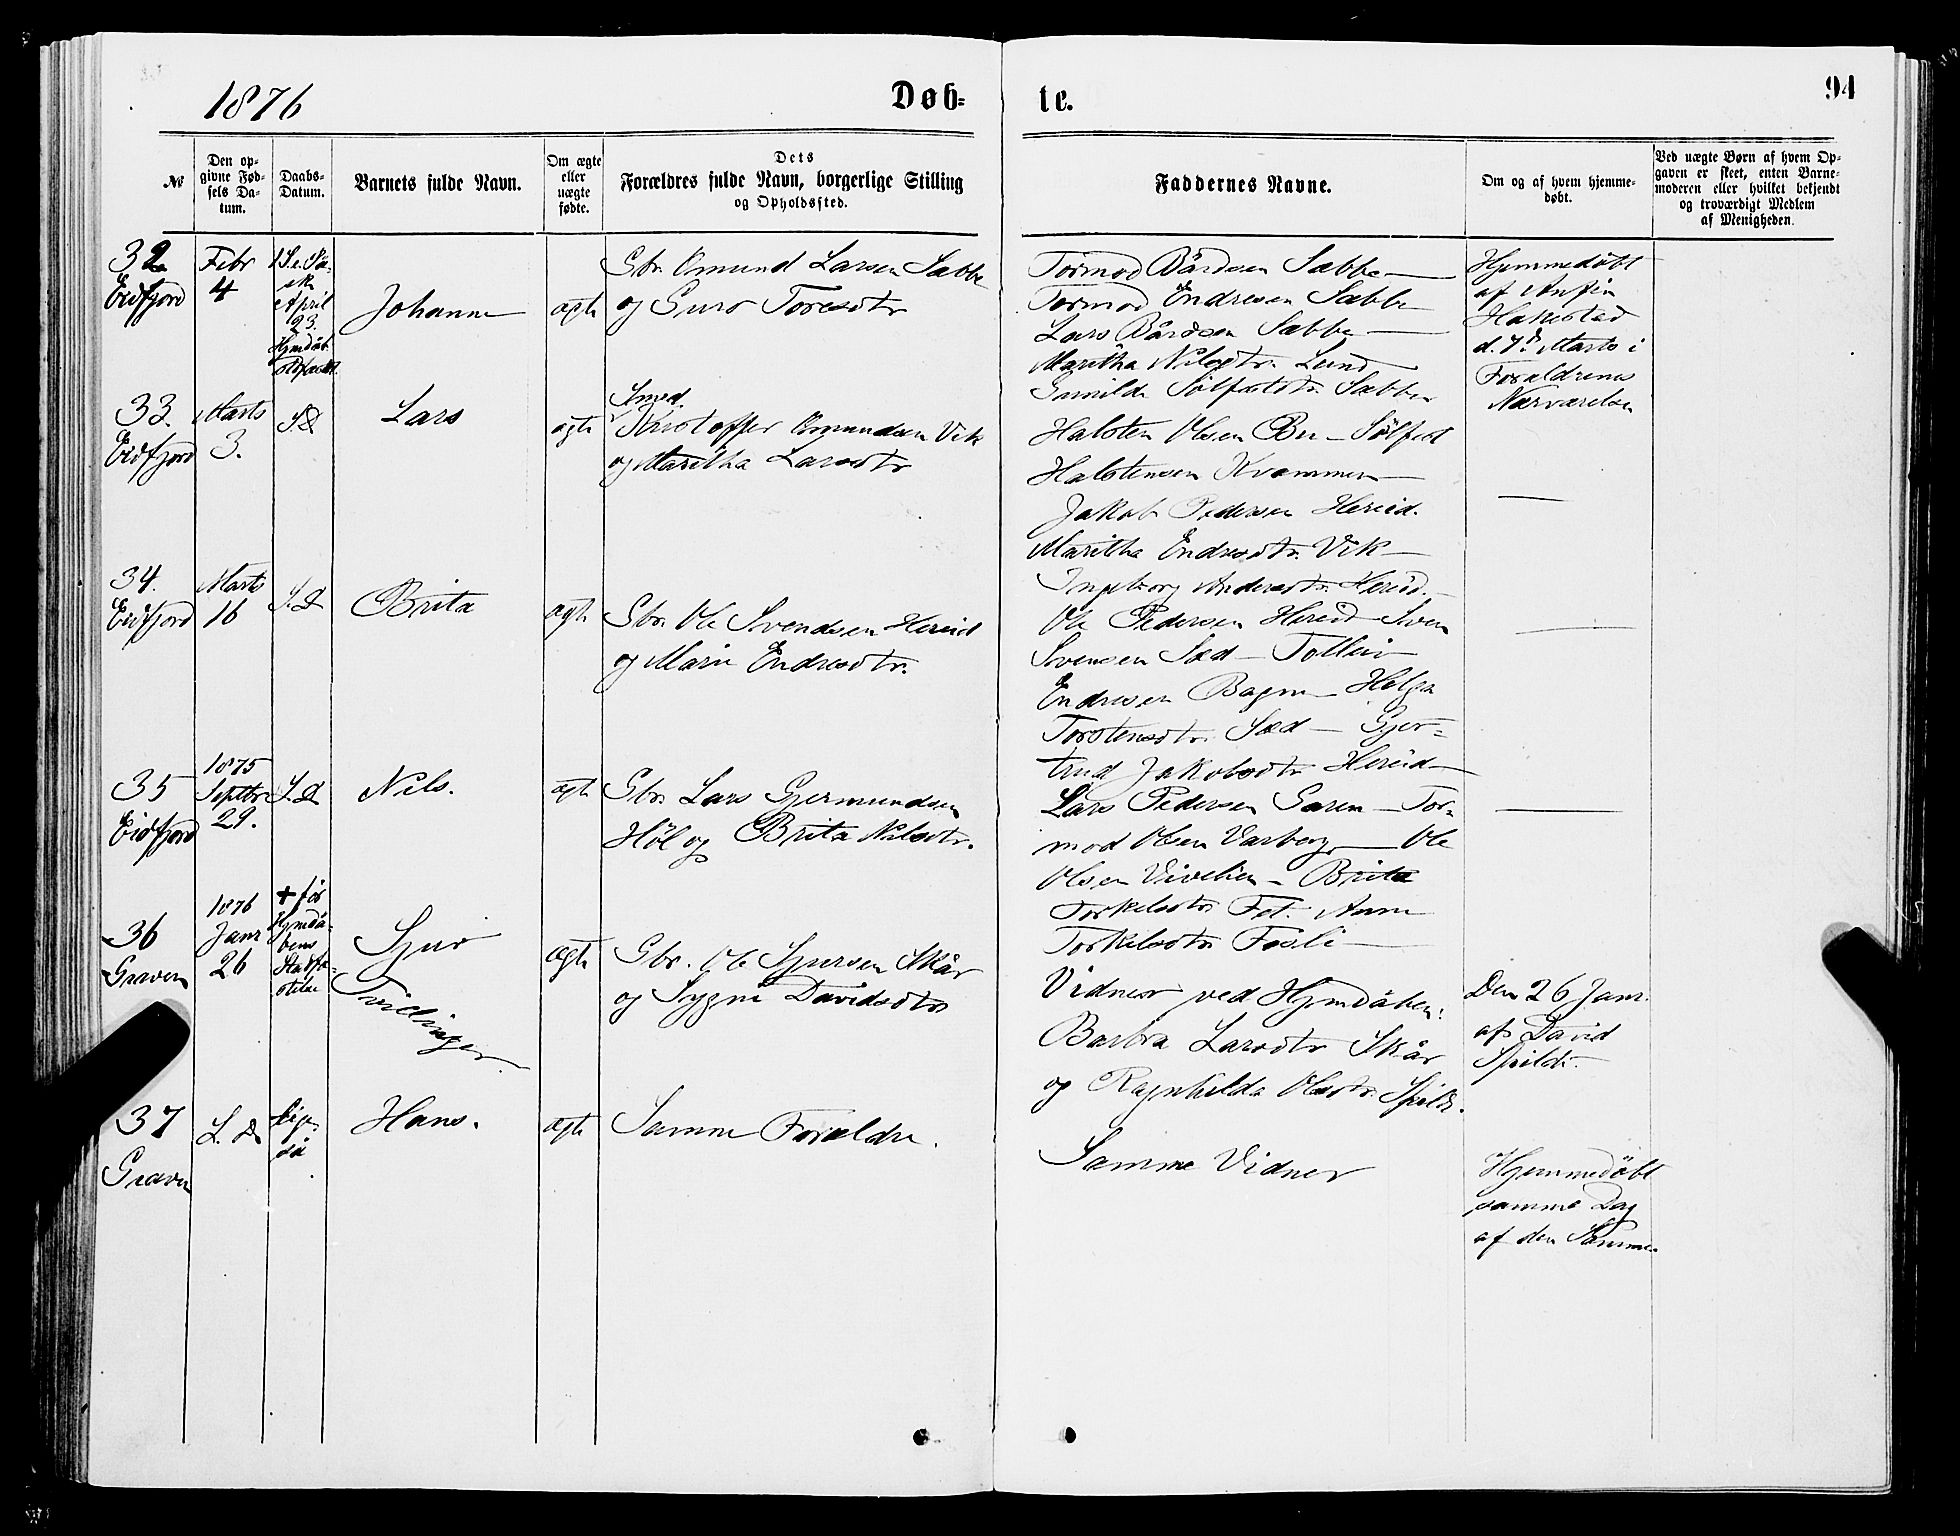 1876
Døb=
te.
94
№
Den op=
givne Fød=
sels Da=
tum.
Daabs=
Datum.
Barnets fulde Navn.
Om ægte
eller
uægte
fødte.
Dets
Forældres fulde Navn, borgerlige Stilling
og Opholdssted.
Faddernes Navne.
Om og af hvem hjemme=
døbt.
Ved uægte Børn af hvem Op=
gaven er skeet, enten Barne=
moderen eller hvilket bekjendt
og troværdigt Medlem
af Menigheden.
32
Eidfjord
Febr
4
April
23.
Hjmdåb.
Johanne
ægte
Gbr. Omund Larsen Sæbbe
og Guro Toresdtr
Tormod Bårdsen Sæbbe
Tormod Endresen Sæbbe
Lars Bårdsen Sæbbe
Maritha Nilsdtr. Lund
Gunilda Sølfestdtr. Sæbbe
Hjemmedöbt
af Anfin
Hakestad
d. 7de Marts i
Forældrenes
Nærværelse
33.
Eidfjord
Marts
3.
S.D.
Lars
ægte
Smed.
Kristoffer Omundsen Vik
og Maritha Larsdtr
Halsten Olsen Bu - Sölfest
Halstensen Kvammen
Jakob Pedersen Hereid.
Maritha Endresdtr. Vik
Ingeborg Andersdtr. Hereid.
34.
Eidfjord
Marts
16
S.D
Brita
ægte
Gbr. Ole Svendsen Hereid
og Mari Endresdtr.
Ole Pedersen Hereid - Sven
Svensen Sæd - Tolleiv
Endresen Bagn - Helga
Torstensdtr. Sæd - Gjer=
trud Jakobsdtr Hereid
35
Eidfjord
1875
Septbr
29.
S.D
Nils.
ægte
Gbr. Lars Gjermundsen
Höl og Brita Nilsdtr.
Lars Pedersen Garen - Tor=
mod Olsen Varberg - Ole
Olsen Vivelien - Brita
Torkelsdtr Fet. Anne
Torkelsdtr Fosli
36
Graven
1876
Janr
26
+ för
Hjmdå=
bens
Stadfæ=
stelse
Sjur
Tvillinger
ægte
Gbr. Ole Sjursen Skår
og Sygni Davidsdtr
Vidner ved Hjmdåben:
Barbra Larsdtr Skår
og Ragnhilda Olsdtr. Spilde.
Den 26 Janr.
af David
Spilde.
37
Graven
S.D
Lige=
så
Hans.
ægte
Samme Forældre.
Samme Vidner
Hjemmedöbt
samme Dag
af den Samme